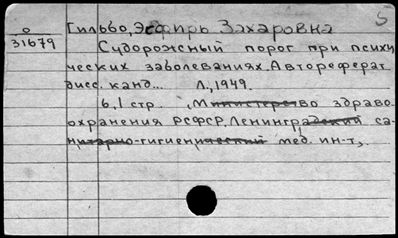 5
о
31679
Гильво, Эсфирь Захаровна
Судорожный порог при психи-
ческих заболеваниях. Автореферат
дисс. канд... Л., 1949.
6,1 стр. (Министерство здраво-
охранения РСФСР. Ленинградский са-
нитарно-гигиенический мед. ин-т).